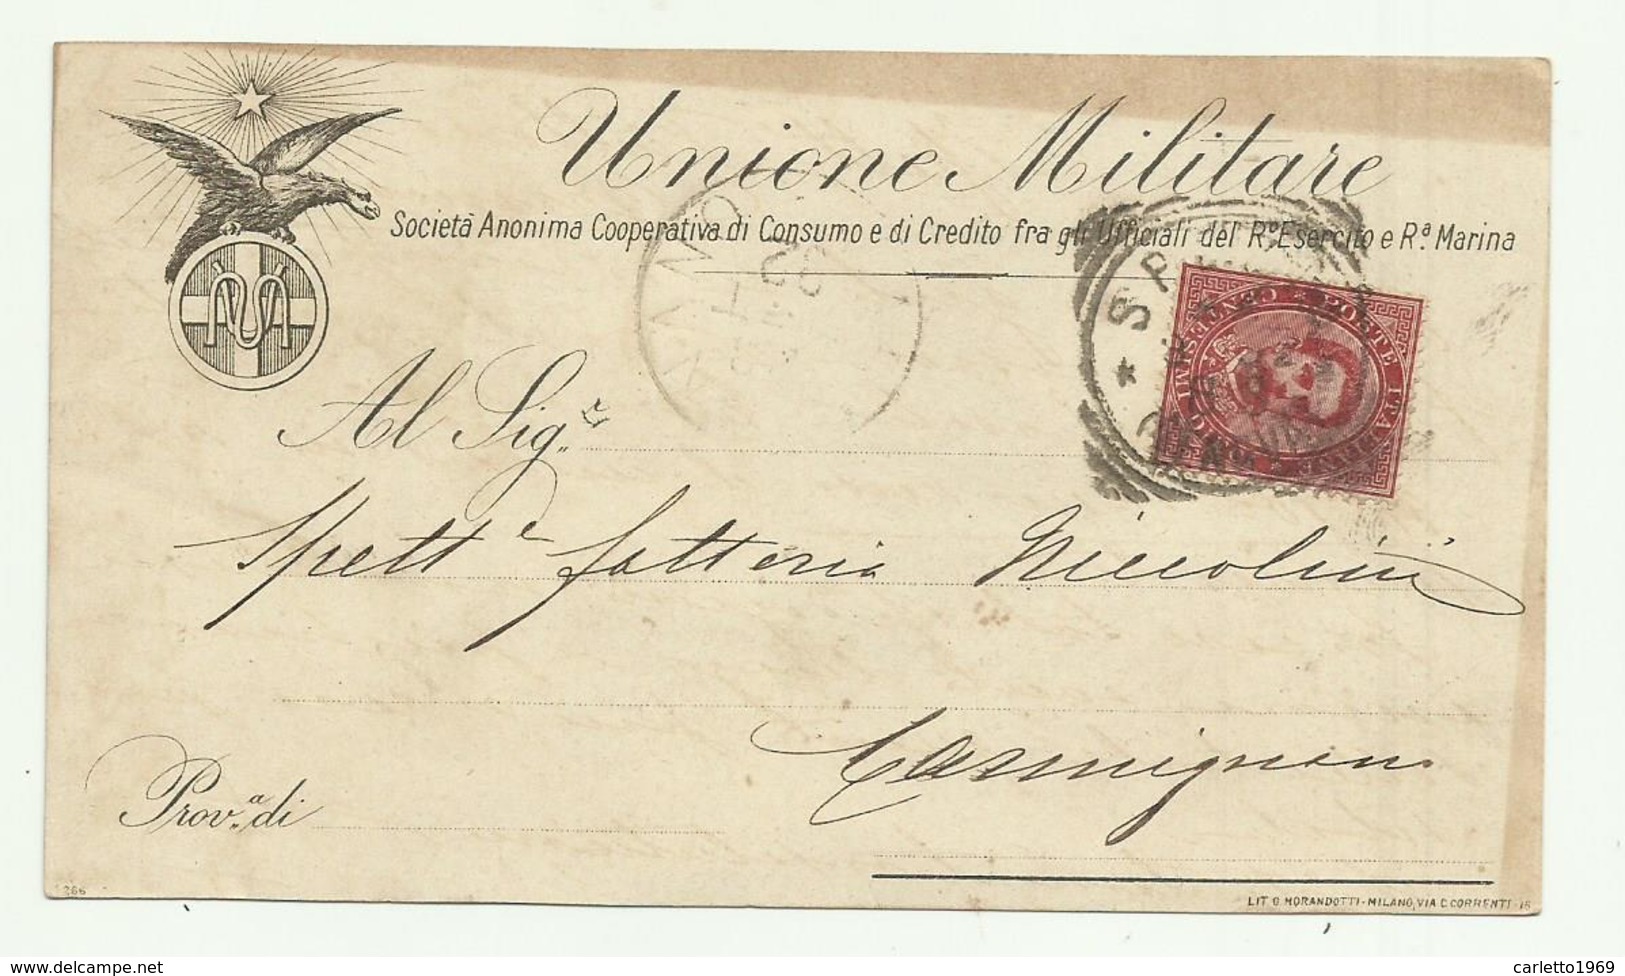 Unione Militare
Società Anonima Cooperativa di Consumo e di Credito fra gli Ufficiali del R.º Esercito e R.ª Marina
POSTE ITALIANE
CENTESIMI
Al Sig.r
Spett.e fattoria Niccolini
Carmignano
Prov.a di
266
LIT. G. MORANDOTTI - MILANO, VIA C. CORRENTI - 15
carletto1969